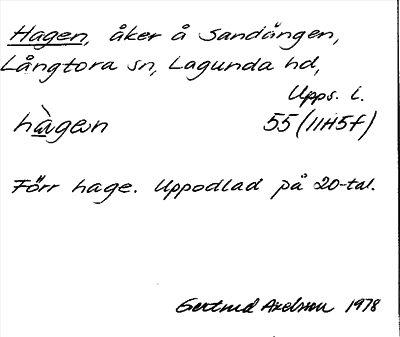 Hagen, åker å Sandängen,
Långtora sn, Lagunda hd,
Upps. l.
hàgen 55 (11H5f)
Förr hage. Uppodlad på 20-tal.
Gertrud Axelsson 1978